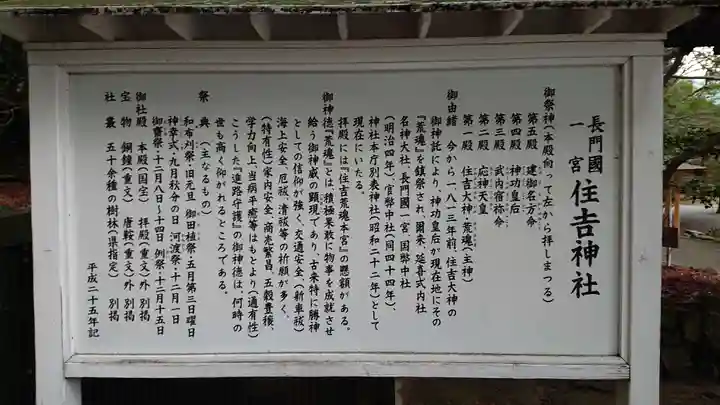 長門國一宮 住吉神社
御祭神(本殿向って左から拝しまつる)
第五殿 建御名方命
第四殿 神功皇后
第三殿 武内宿祢命
第二殿 応神天皇
第一殿 住吉大神荒魂(主神)
御由緒 今から一八一三年前、住吉大神の
御神託により、神功皇后が現在地にその
『荒魂』を鎮祭され、爾来、延喜式内社
名神大社、長門國一宮、国幣中社
(明治四年)、官幣中社(同四十四年)、
神社本庁別表神社(昭和二十二年)として
現在にいたる。
拝殿には『住吉荒魂本宮』の懸額がある。
御神徳『荒魂』とは、積極果敢に物事を成就させ
給う御神威の顕現であり、古来特に勝神
としての信仰が強く、交通安全、(新車祓)
海上安全、厄祓、清祓等の祈願が多く、
(特有性)家内安全、商売繁昌、五穀豊穣、
学力向上、当病平癒等はもとより(通有性)
こうした『進路守護』の御神徳は、何時の
世も高く仰がれるところである。
祭典(主なるもの)
和布刈祭・旧元旦 御田植祭・五月第三日曜日
神幸式・九月秋分の日 河渡祭・十二月一日
御斎祭・十二月八日〜十四日 例祭・十二月十五日
御社殿 本殿(国宝) 拝殿(重文) 外 別掲
宝物 銅鐘(重文) 唐鞍(重文) 外 別掲
社叢 五十余種の樹林(県指定)
平成二十五年記